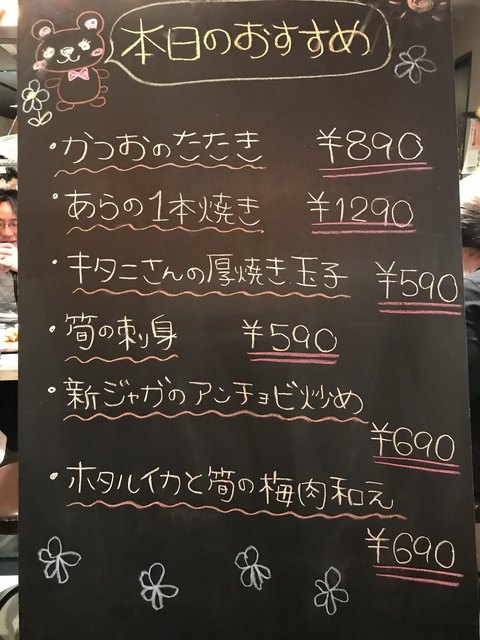 本日のおすすめ
・かつおのたたき ¥890
・あらの1本焼き ¥1290
・キタニさんの厚焼き玉子 ¥590
・筍の刺身 ¥590
・新ジャガのアンチョビ炒め
¥690
・ホタルイカと筍の梅肉和え
¥690